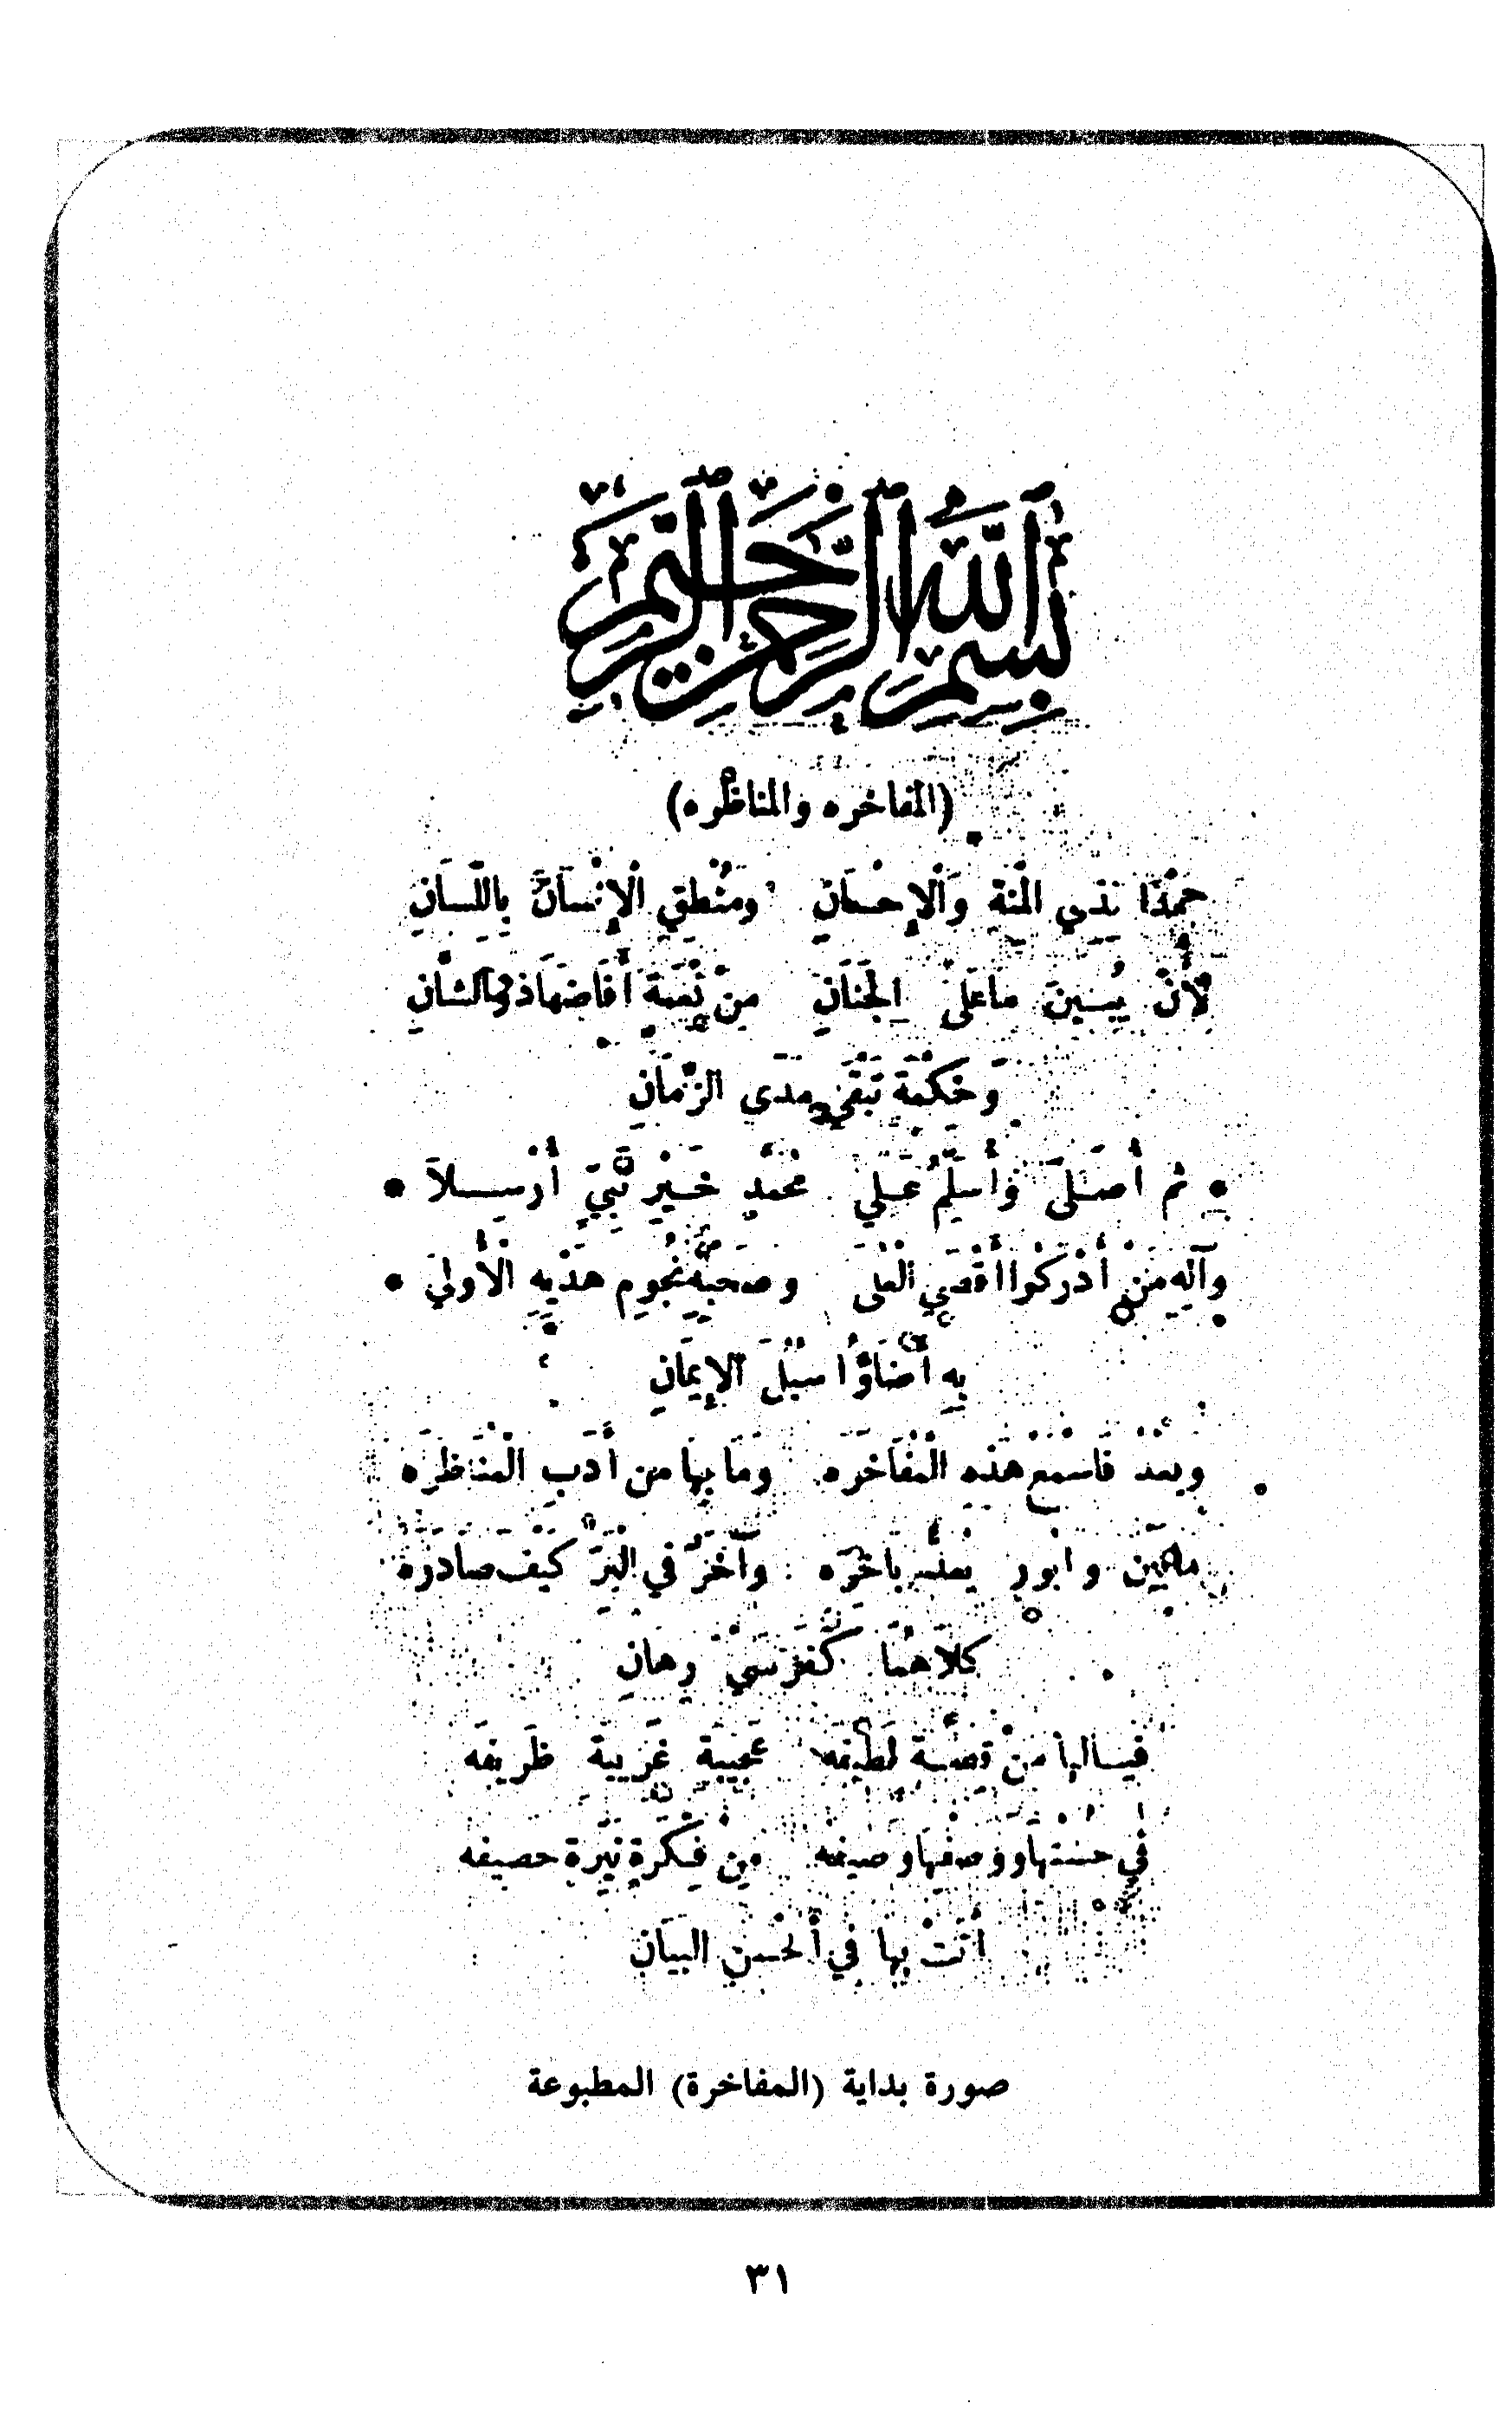 بِسْمِ اللهِ الرَّحْمٰنِ الرَّحِيمِ
(المفاخره والمناظره)
حَمْدًا لِذِي الْمِنَّةِ وَالْإِحْسَانِ وَمُنْطِقِ الْإِنْسَانِ بِاللِّسَانِ
لِأَنْ يُبِينَ مَا عَلَى الْجَنَانِ مِنْ نِعْمَةٍ أَفَاضَهَا ذُو الشَّانِ
وَحِكْمَةٍ تَبْقَى مَدَى الزَّمَانِ
• ثم أُصَلِّي وَأُسَلِّمُ عَلَى مُحَمَّدٍ خَيْرِ نَبِيٍّ أُرْسِلاَ •
وَآلِهِ مَنْ أَدْرَكُوا أَقْصَى الْعُلَى وصَحْبِهِ نُجُومِ هَدْيِهِ الْأُولَى •
بِهِ أَضَاؤُا سُبُلَ الْإِيمَانِ
وبَعْدُ فَاسْمَعْ هَذِهِ الْمُفَاخَرَه وَمَا بِهَا من أَدَبِ الْمُنَاظَرَه
مابين وابورٍ يعلم بَاخِرَه وَآخَرٍ في الْبَرِّ كَيْفَ صَادَرَهْ
كِلَاهُمَا كَفَرَسَيْ رِهَانِ
فيالها مِنْ قِصَّةٍ لَطِيفَه عَجِيبَةٍ غَرِيبَةٍ ظَرِيفَه
في حُسْنِهَا وَوَصْفِهَا وَصِيفَه مِنْ فِكْرَةٍ نَيِّرَةٍ حصيفه
أَتَتْ بِهَا فِي أَحْسَنِ الْبَيَانِ
صورة بداية (المفاخرة) المطبوعة
٣١